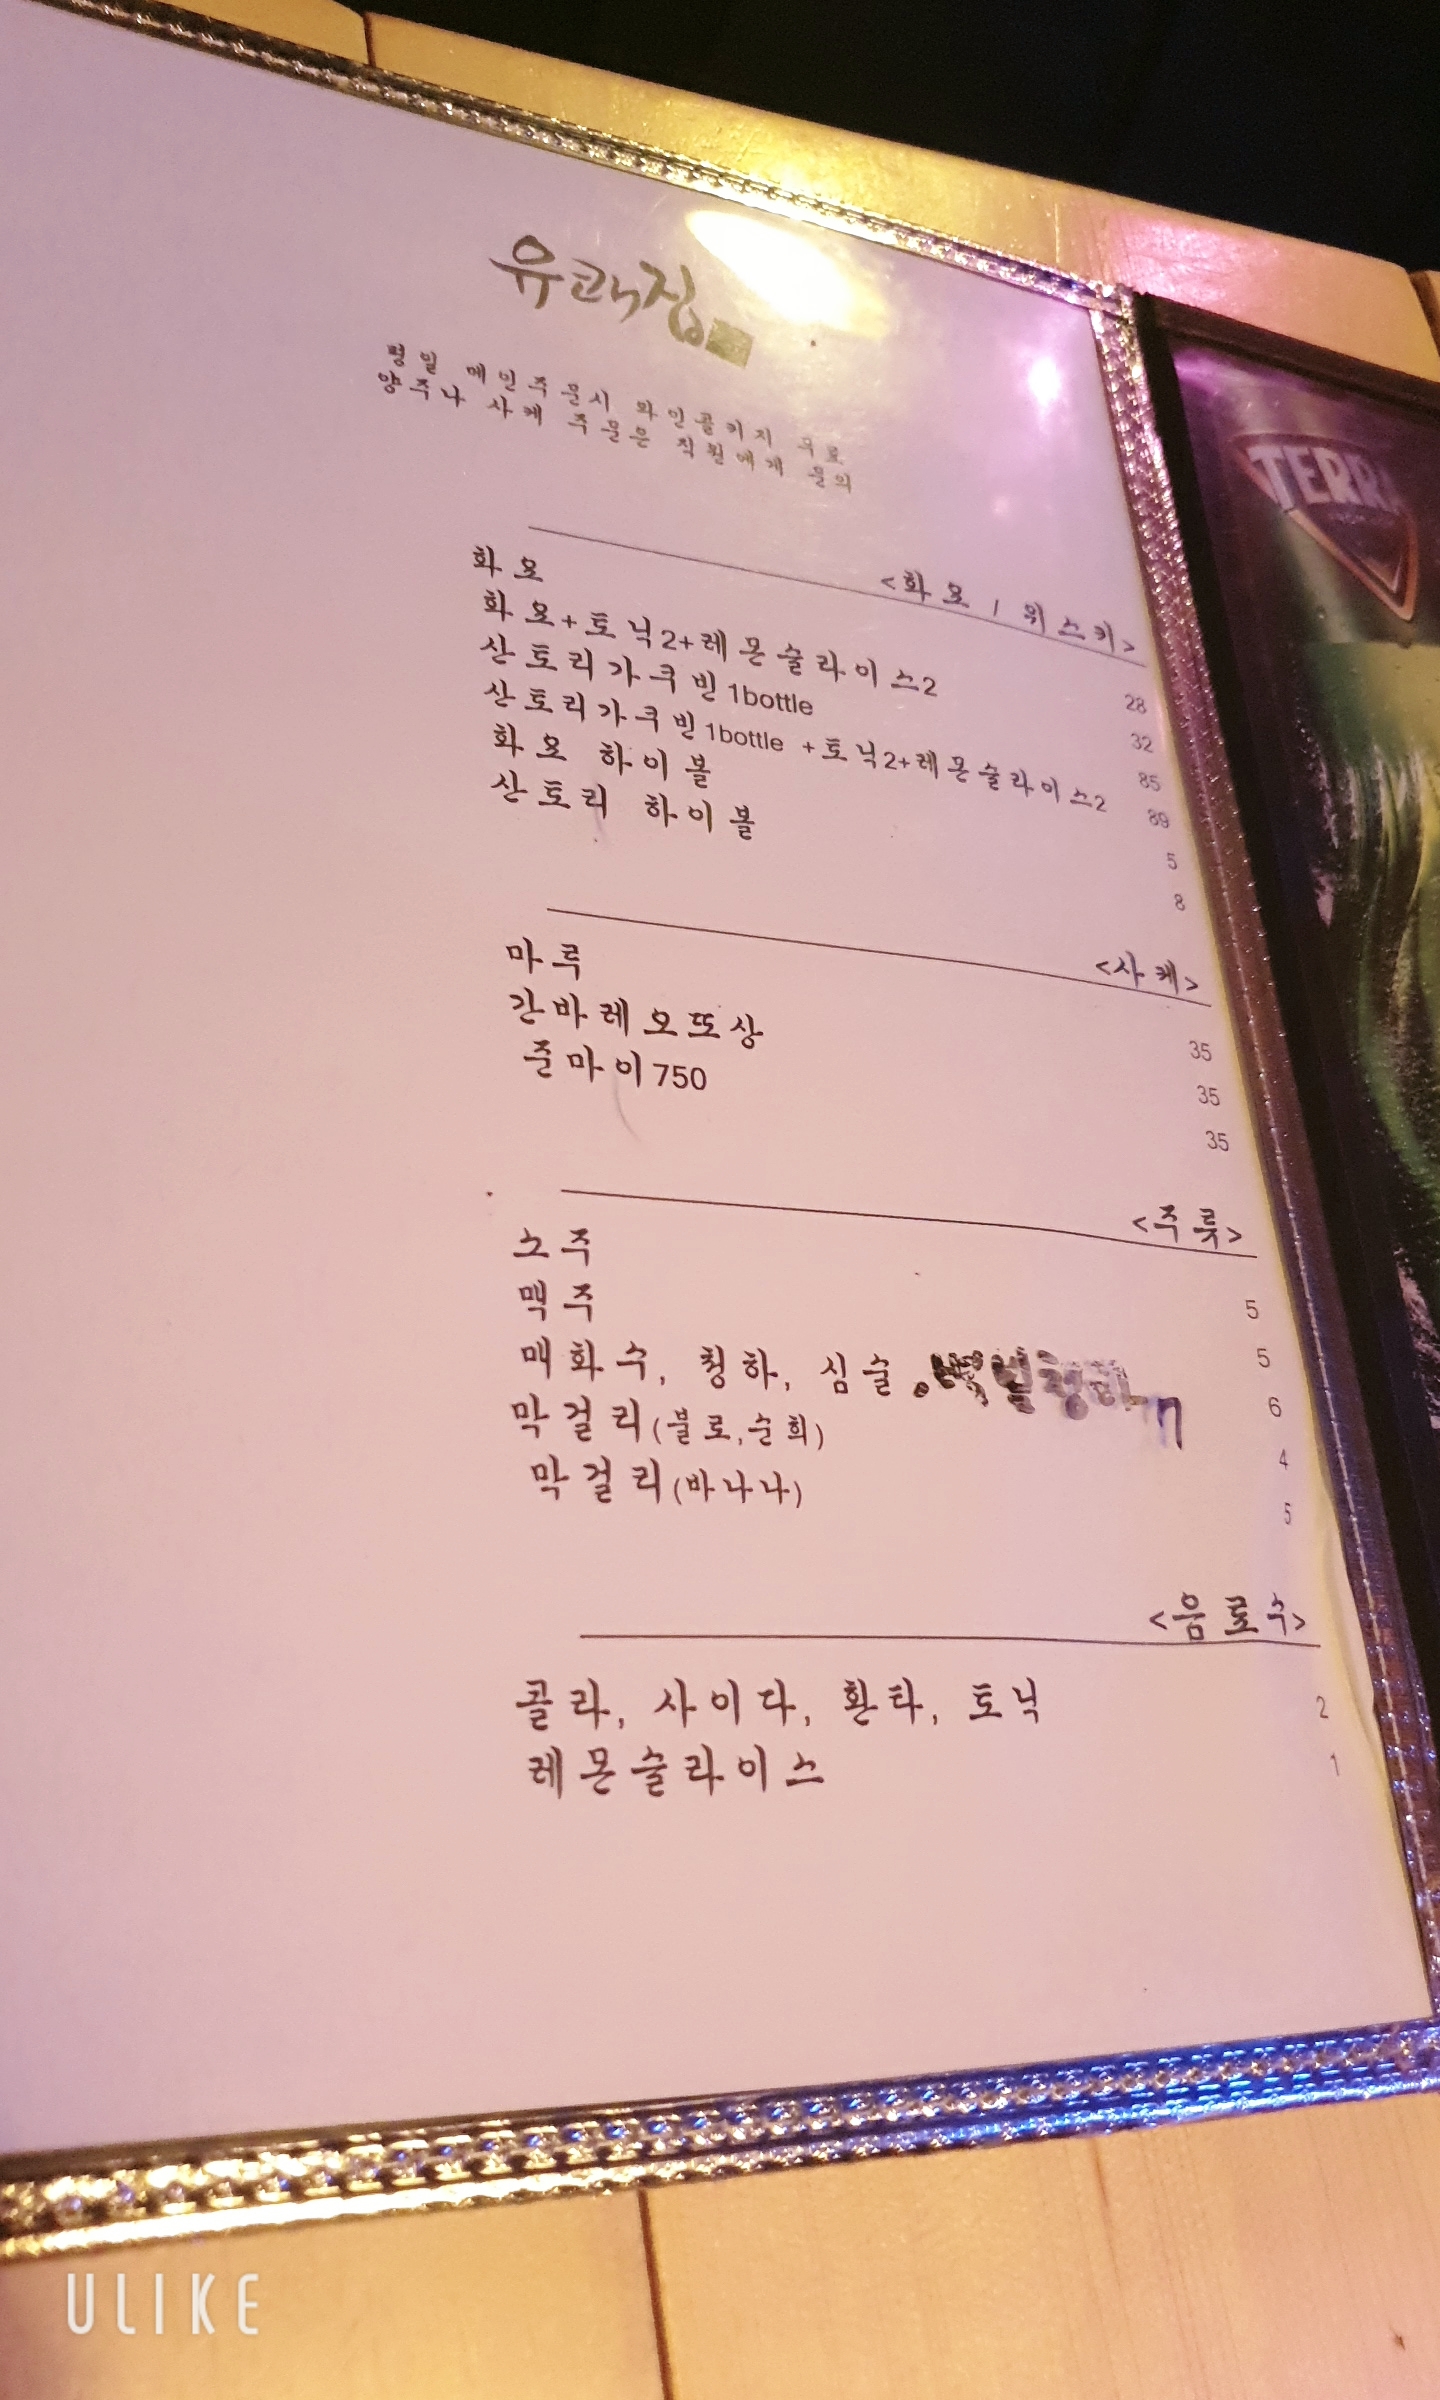 유쾌집
평일 메인주문시 와인콜키지 무료
양주나 사케 주문은 직원에게 문의
<화요 / 위스키>
화요 28
화요+토닉2+레몬슬라이스2 32
산토리가쿠빈1bottle 85
산토리가쿠빈1bottle +토닉2+레몬슬라이스2 89
화요 하이볼 5
산토리 하이볼 8
<사케>
마루 35
간바레오또상 35
준마이750 35
<주룻>
소주 5
맥주 5
매화수, 청하, 심술 6
막걸리(불로,순희) 4
막걸리(바나나) 5
<음료수>
콜라, 사이다, 환타, 토닉 2
레몬슬라이스 1
TERRA
ULIKE